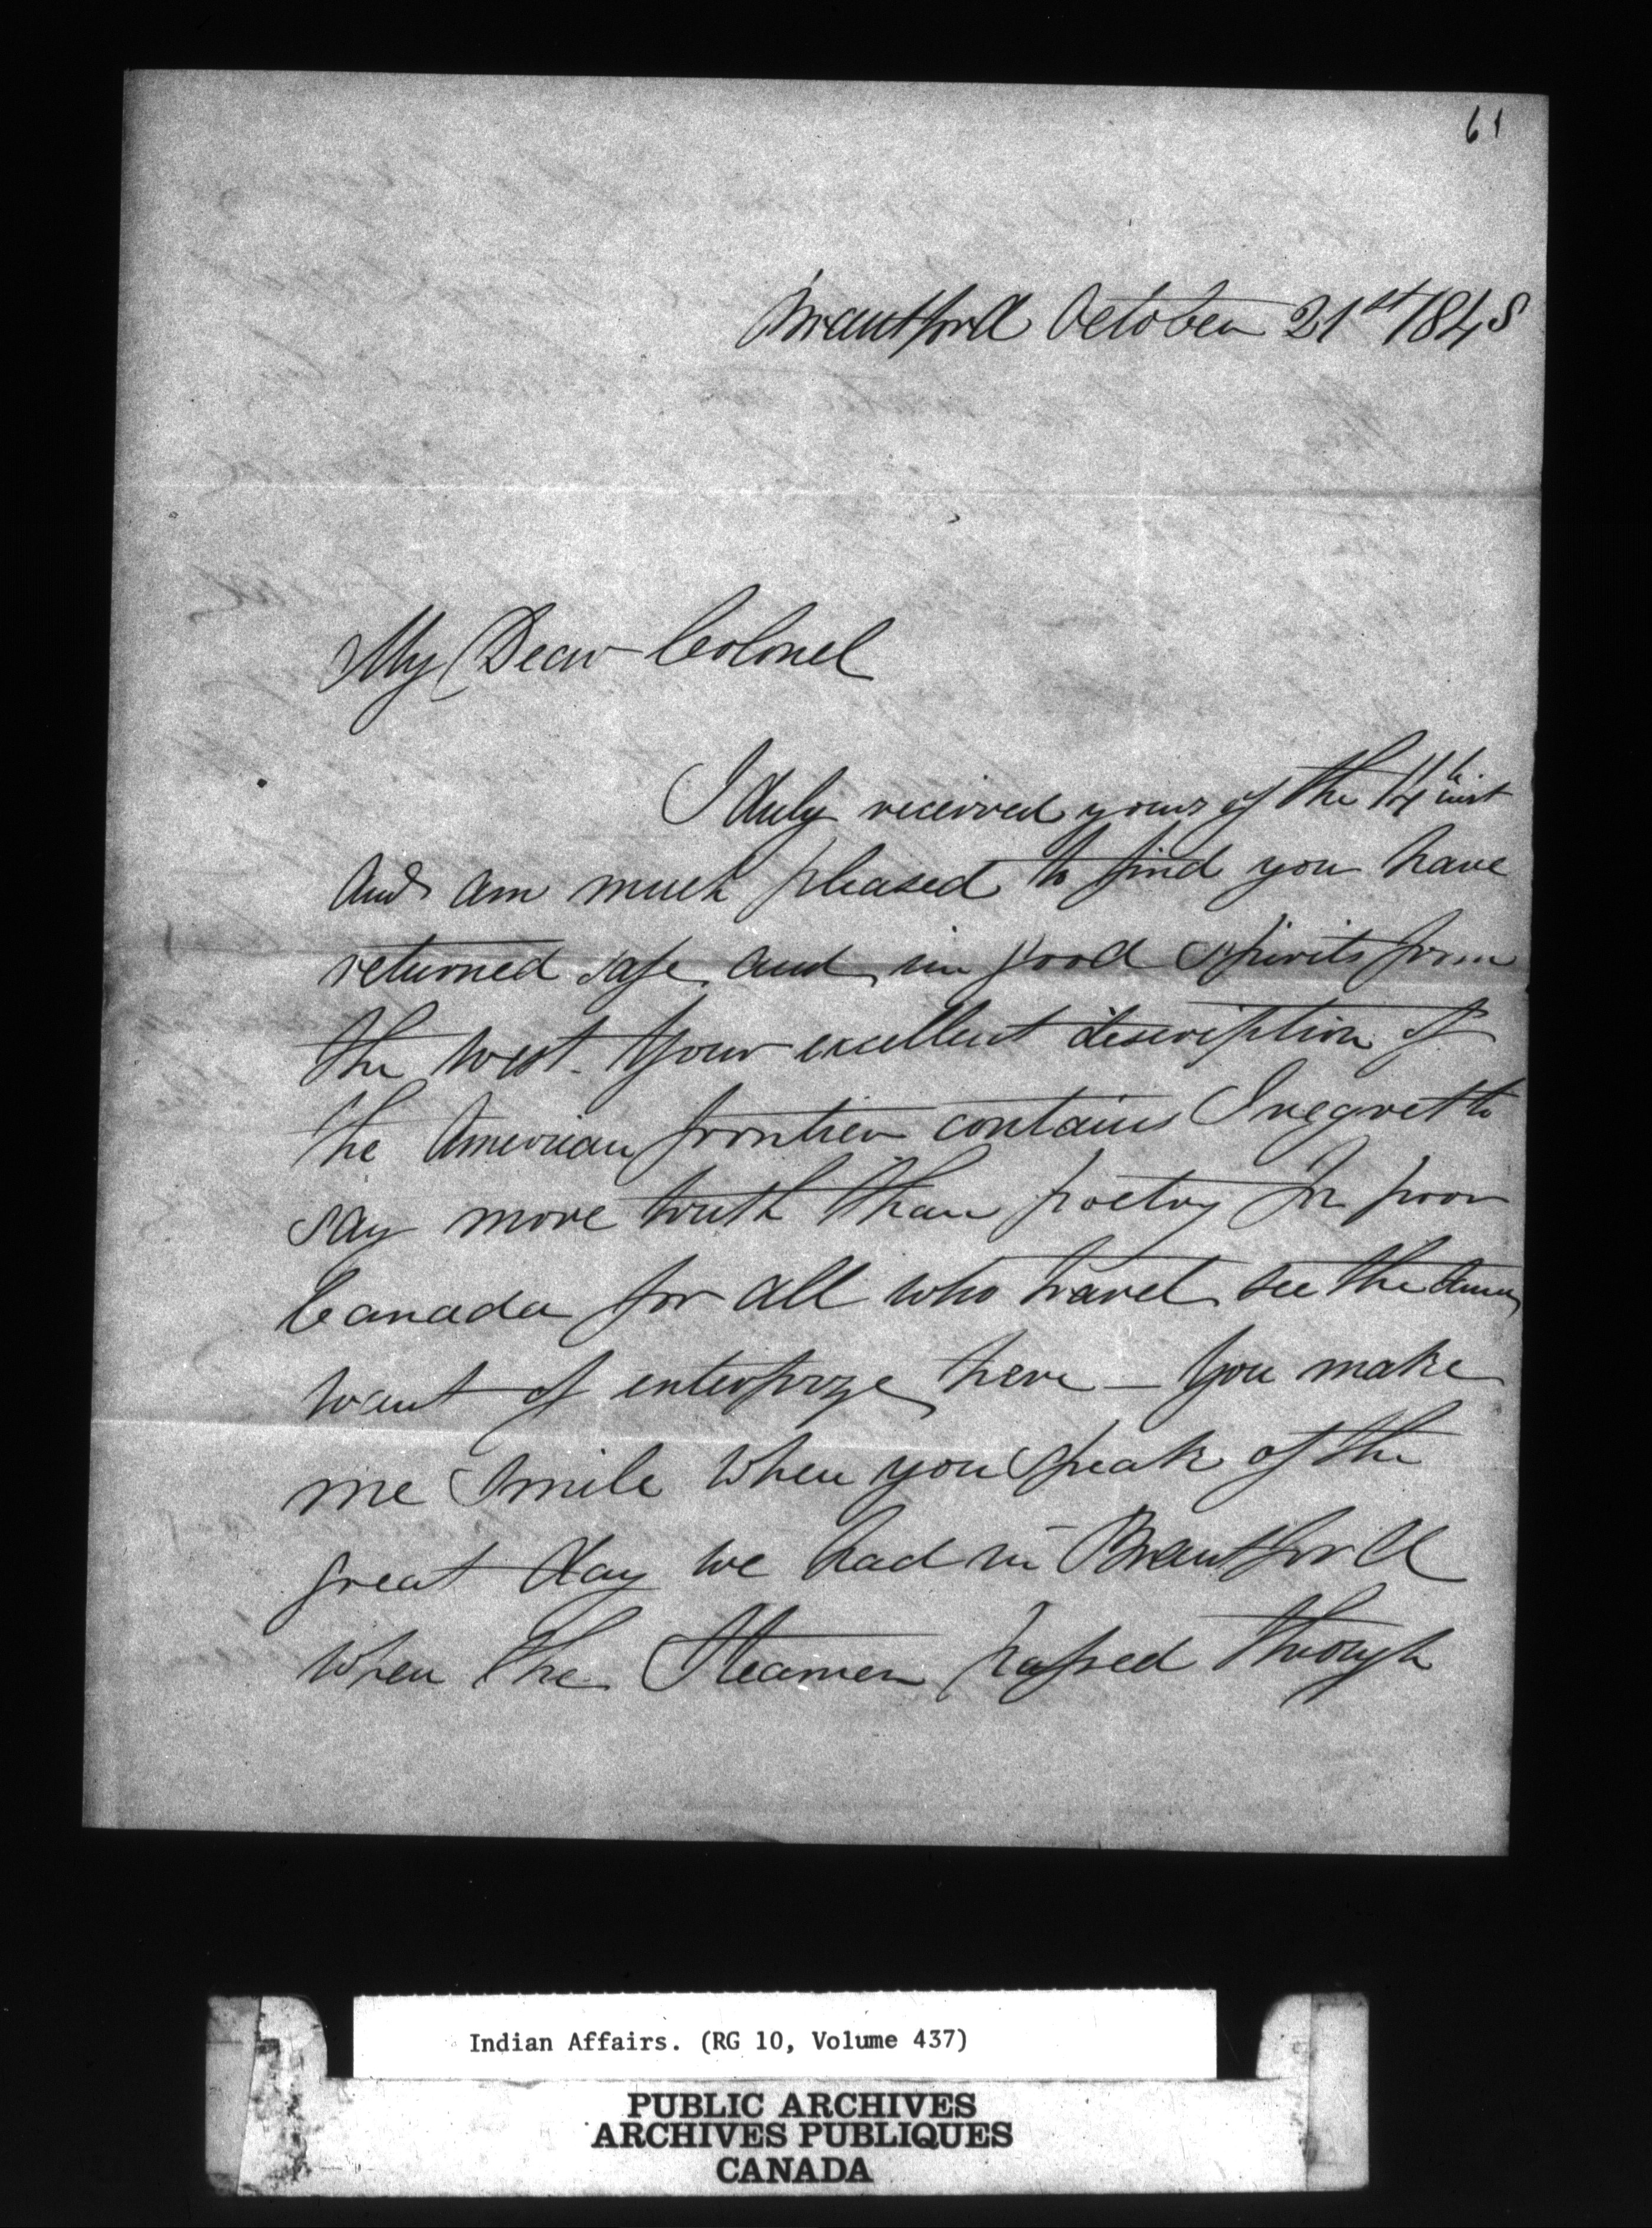 61
Brantford October 21st 1848
My Dear Colonel
I duly received yours of the 14th inst
and am much pleased to find you have
returned safe and in good spirits from
the west. Your excellent description of
the American frontier contains I regret to
say more truth than poetry for poor
Canada for all who travel see the
want of enterprize here — You make
me smile when you speak of the
great day we had in Brantford
when the Steamer passed through
Indian Affairs. (RG 10, Volume 437)
PUBLIC ARCHIVES
ARCHIVES PUBLIQUES
CANADA